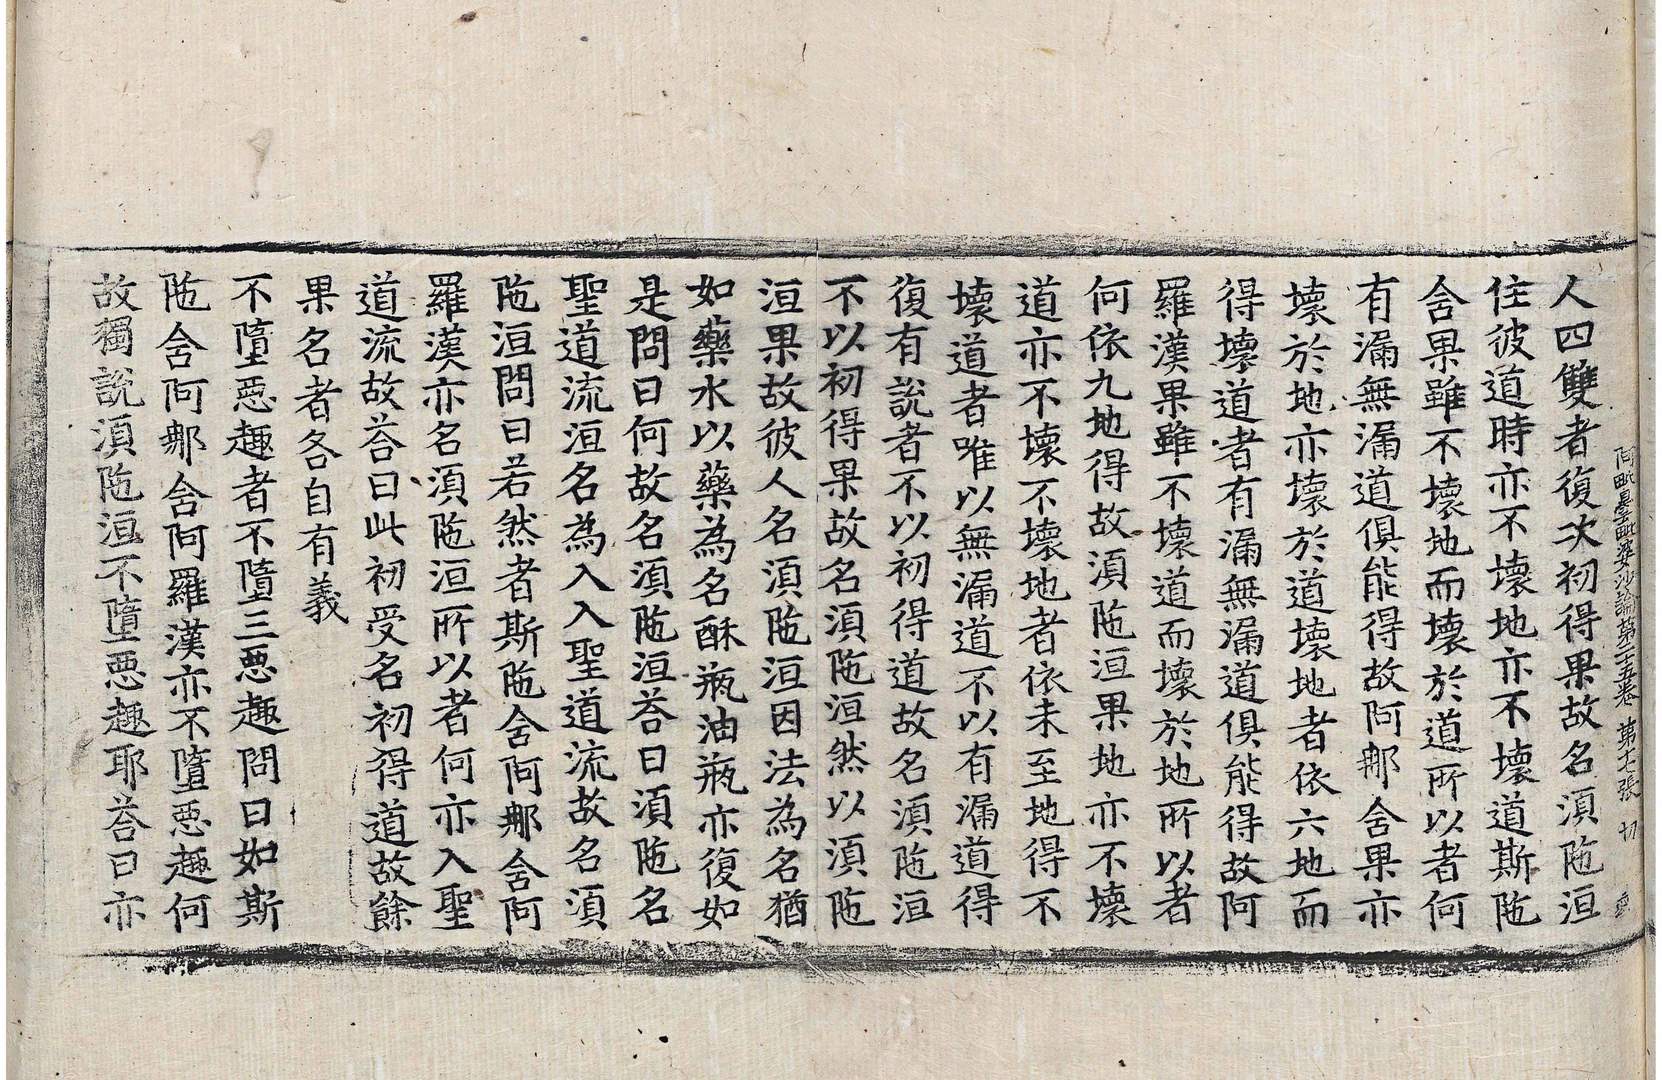 阿毗曇毗婆沙論第二十五卷 第十七張 切
人四雙者復次初得果故名須陁洹
住彼道時亦不壞地亦不壞道斯陁
含果雖不壞地而壞於道所以者何
有漏無漏道俱能得故阿那含果亦
壞於地亦壞於道壞地者依六地而
得壞道者有漏無漏道俱能得故阿
羅漢果雖不壞道而壞於地所以者
何依九地得故須陁洹果地亦不壞
道亦不壞不壞地者依未至地得不
壞道者唯以無漏道不以有漏道得
復有說者不以初得道故名須陁洹
不以初得果故名須陁洹然以須陁
洹果故彼人名須陁洹因法為名猶
如藥水以藥為名酥瓶油瓶亦復如
是問曰何故名須陁洹荅曰須陁名
聖道流洹名為入入聖道流故名須
陁洹問曰若然者斯陁含阿那含阿
羅漢亦名須陁洹所以者何亦入聖
道流故荅曰此初受名初得道故餘
果名者各自有義
不墮惡趣者不墮三惡趣問曰如斯
陁含阿那含阿羅漢亦不墮惡趣何
故獨說須陁洹不墮惡趣耶荅曰亦